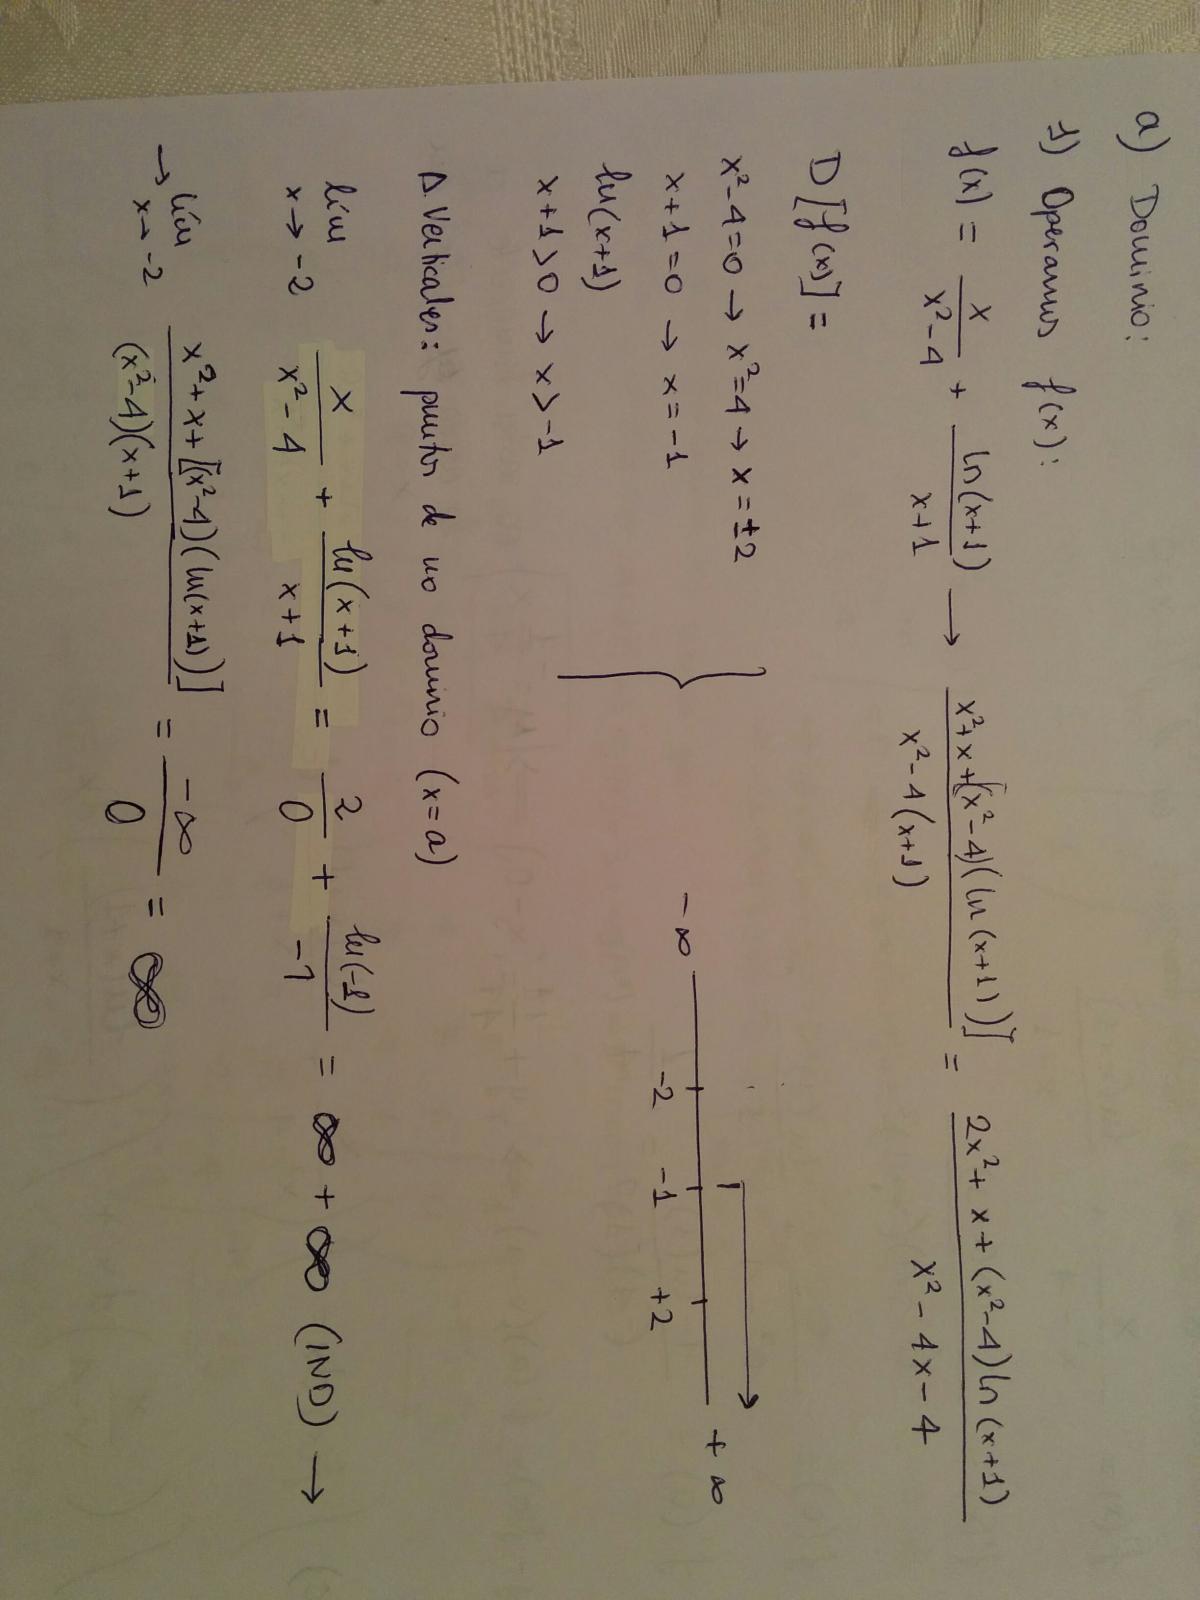 a) Dominio:
1) Operamos f(x):
f(x) = x/(x²-4) + ln(x+1)/(x+1) → (x²+x+[(x²-4)(ln(x+1))])/(x²-4(x+1)) = (2x²+x+(x²-4)ln(x+1))/(x²-4x-4)
D[f(x)] =
x²-4=0 → x²=4 → x=±2
x+1=0 → x=-1
ln(x+1)
x+1>0 → x>-1
-∞ -2 -1 +2 +∞
A. Verticales: puntos de no dominio (x=a)
lím x→-2 x/(x²-4) + ln(x+1)/(x+1) = 2/0 + ln(-1)/-1 = ∞ + ∞ (IND) →
→ lím x→-2 (x²+x+[(x²-4)(ln(x+1))])/((x²-4)(x+1)) = -∞/0 = ∞